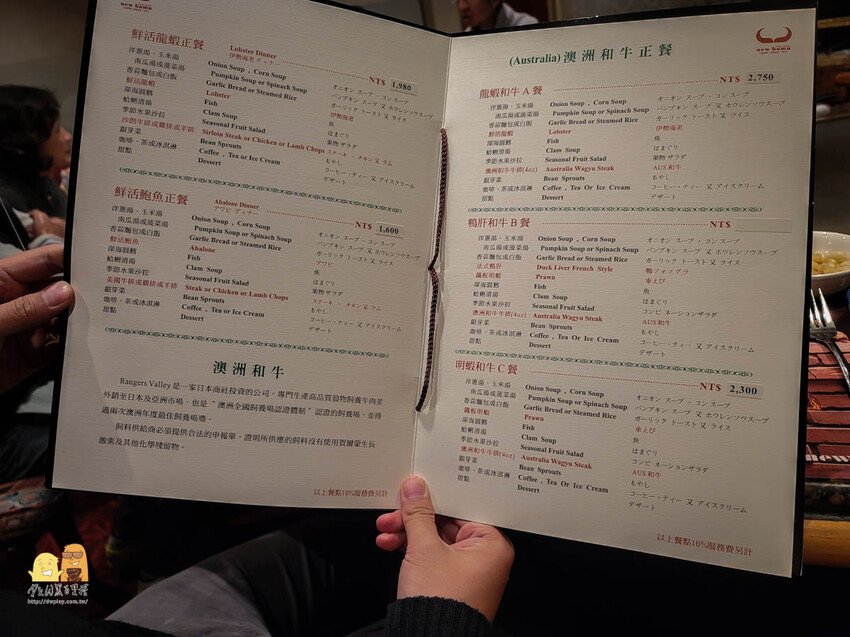 new hama
鮮活龍蝦正餐
Lobster Dinner
伊勢海老ディナー
NT$ 1,980
洋蔥湯、玉米湯 Onion Soup , Corn Soup オニオン スープ、コン スープ
南瓜湯或菠菜湯 Pumpkin Soup or Spinach Soup パンプキン スープ 又 ホウレンソウスープ
香蒜麵包或白飯 Garlic Bread or Steamed Rice ガーリック トースト 又 ライス
鮮活龍蝦 Lobster 伊勢海老
深海圓鱈 Fish 魚
蛤蜊清湯 Clam Soup はまぐり
季節水果沙拉 Seasonal Fruit Salad 果物 サラダ
沙朗牛排或雞排或羊排 Sirloin Steak or Chicken or Lamb Chops ステーキ、チキン 又 ラム
銀芽菜 Bean Sprouts もやし
咖啡、茶或冰淇淋 Coffee , Tea or Ice Cream コーヒー、ティー 又 アイスクリーム
甜點 Dessert デザート
鮮活鮑魚正餐
Abalone Dinner
アワビ ディナー
NT$ 1,600
洋蔥湯、玉米湯 Onion Soup , Corn Soup オニオン スープ、コン スープ
南瓜湯或菠菜湯 Pumpkin Soup or Spinach Soup パンプキン スープ 又 ホウレンソウスープ
香蒜麵包或白飯 Garlic Bread or Steamed Rice ガーリック トースト 又 ライス
鮮活鮑魚 Abalone アワビ
深海圓鱈 Fish 魚
蛤蜊清湯 Clam Soup はまぐり
季節水果沙拉 Seasonal Fruit Salad 果物 サラダ
美國牛排或雞排或羊排 Steak or Chicken or Lamb Chops ステーキ、チキン 又 ラム
銀芽菜 Bean Sprouts もやし
咖啡、茶或冰淇淋 Coffee , Tea or Ice Cream コーヒー・ティー 又 アイスクリーム
甜點 Dessert デザート
澳洲和牛
Rangers Valley是一家日本商社投資的公司，專門生產高品質穀物飼養牛肉並
外銷至日本及亞洲市場，也是"澳洲全國飼養場認證體制"認證的飼養場，並得
過兩次澳洲年度最佳飼養場獎。
飼料供給商必須提供合法的申報單，證明所供應的飼料沒有使用賀爾蒙生長
激素及其他化學殘留物。
以上餐點10%服務費另計
new hama
(Australia) 澳洲和牛正餐
龍蝦和牛A餐 NT$ 2,750
洋蔥湯、玉米湯 Onion Soup , Corn Soup オニオン スープ、コン スープ
南瓜湯或菠菜湯 Pumpkin Soup or Spinach Soup パンプキン スープ 又 ホウレンソウスープ
香蒜麵包或白飯 Garlic Bread or Steamed Rice ガーリック トースト 又 ライス
鮮活龍蝦 Lobster 伊勢海老
深海圓鱈 Fish 魚
蛤蜊清湯 Clam Soup はまぐり
季節水果沙拉 Seasonal Fruit Salad 果物 サラダ
澳洲和牛牛排(4oz) Australia Wagyu Steak AUS和牛
銀芽菜 Bean Sprouts もやし
咖啡、茶或冰淇淋 Coffee , Tea Or Ice Cream コーヒー・ティー 又 アイスクリーム
甜點 Dessert デザート
鴨肝和牛B餐 NT$
洋蔥湯、玉米湯 Onion Soup , Corn Soup オニオン スープ、コン スープ
南瓜湯或菠菜湯 Pumpkin Soup or Spinach Soup パンプキン スープ 又 ホウレンソウスープ
香蒜麵包或白飯 Garlic Bread or Steamed Rice ガーリック トースト 又 ライス
法式鴨肝 Duck Liver French Style 鴨フォアグラ
鐵板明蝦 Prawn 車えび
深海圓鱈 Fish 魚
蛤蜊清湯 Clam Soup はまぐり
季節水果沙拉 Seasonal Fruit Salad コンビ ネーションサラダ
澳洲和牛牛排(4oz) Australia Wagyu Steak AUS和牛
銀芽菜 Bean Sprouts もやし
咖啡、茶或冰淇淋 Coffee , Tea Or Ice Cream コーヒー・ティー 又 アイスクリーム
甜點 Dessert デザート
明蝦和牛C餐 NT$ 2,300
洋蔥湯、玉米湯 Onion Soup , Corn Soup オニオン スープ、コン スープ
南瓜湯或菠菜湯 Pumpkin Soup or Spinach Soup パンプキン スープ 又 ホウレンソウスープ
香蒜麵包或白飯 Garlic Bread or Steamed Rice ガーリック トースト 又 ライス
鐵板明蝦 Prawn 車えび
深海圓鱈 Fish 魚
蛤蜊清湯 Clam Soup はまぐり
季節水果沙拉 Seasonal Fruit Salad コンビ ネーションサラダ
澳洲和牛牛排(4oz) Australia Wagyu Steak AUS和牛
銀芽菜 Bean Sprouts もやし
咖啡、茶或冰淇淋 Coffee , Tea Or Ice Cream コーヒー・ティー 又 アイスクリーム
甜點 Dessert デザート
以上餐點10%服務費另計
http://dwplay.com.tw/